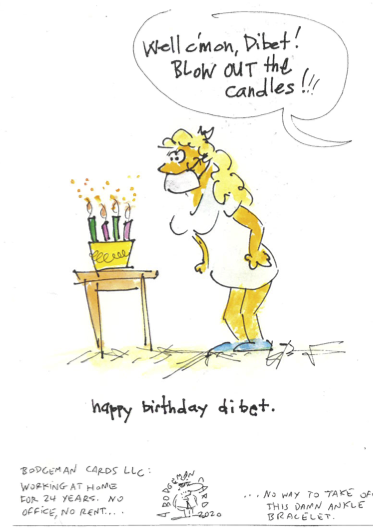 Well c'mon, Dibet!
BLOW OUT the
candles!!!
happy birthday dibet.
BODGEMAN CARDS LLC:
WORKING AT HOME
FOR 24 YEARS. NO
OFFICE, NO RENT....
A BODGEMAN CARD
2020
...NO WAY TO TAKE OF
THIS DAMN ANKLE
BRACELET.